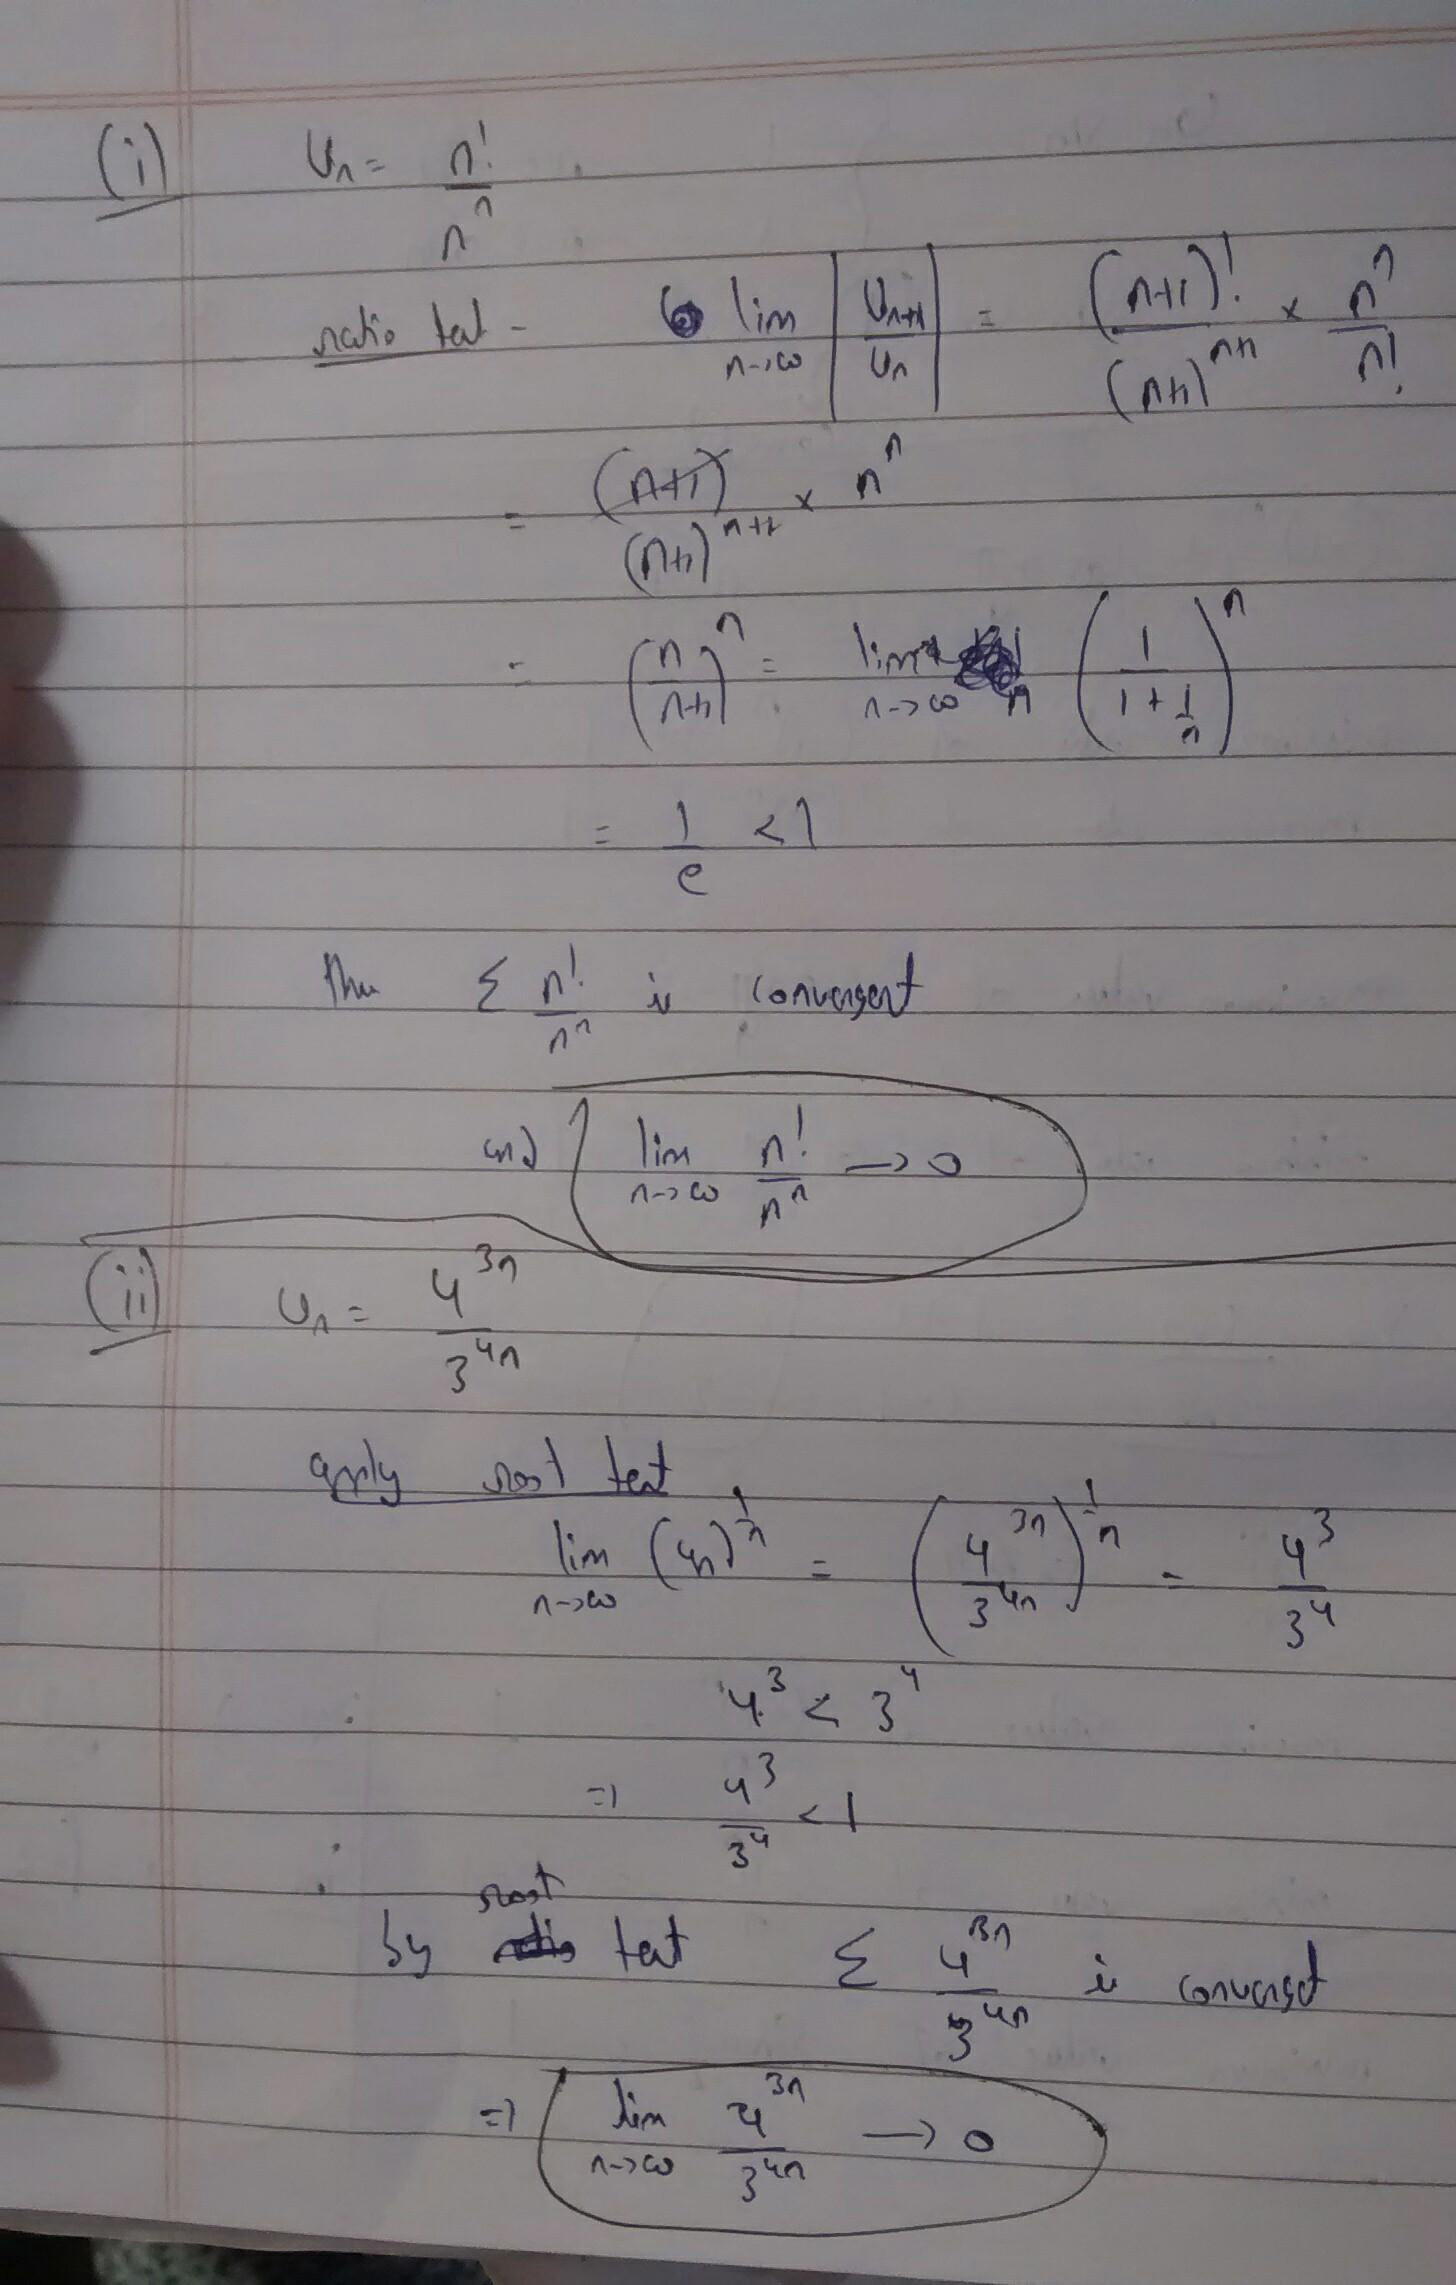 (i) Un = n!/n^n
ratio test - lim n→∞ |Un+1/Un| = (n+1)!/(n+1)^(n+1) × n^n/n!
= (n+1)/(n+1)^(n+1) × n^n
= (n/(n+1))^n = lim n→∞ (1/(1+1/n))^n
= 1/e < 1
thus Σ n!/n^n is convergent
and lim n→∞ n!/n^n → 0
(ii) Un = 4^3n/3^4n
apply root test
lim n→∞ (Un)^(1/n) = (4^3n/3^4n)^(1/n) = 4^3/3^4
4^3 < 3^4
⇒ 4^3/3^4 < 1
by root test Σ 4^3n/3^4n is convergent
⇒ lim n→∞ 4^3n/3^4n → 0